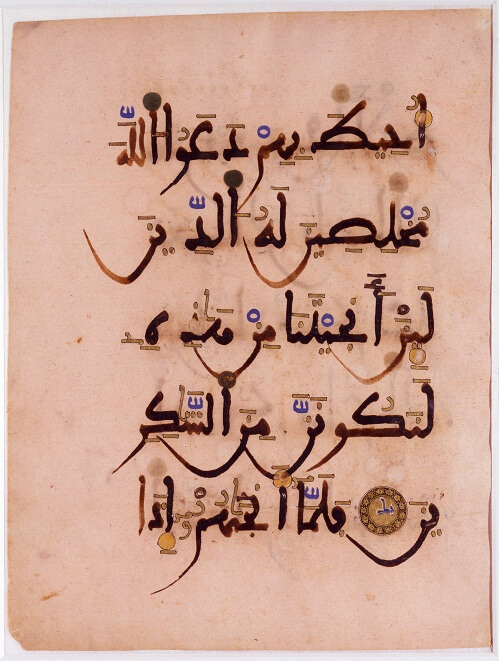 أُحِيطَ بِهِمْ دَعَوُا اللَّهَ
مُخْلِصِينَ لَهُ الدِّينَ
لَئِنْ أَنجَيْتَنَا مِنْ هَٰذِهِ
لَنَكُونَنَّ مِنَ الشَّٰكِرِ
ينَ فَلَمَّا أَنجَىٰهُمْ إِذَا